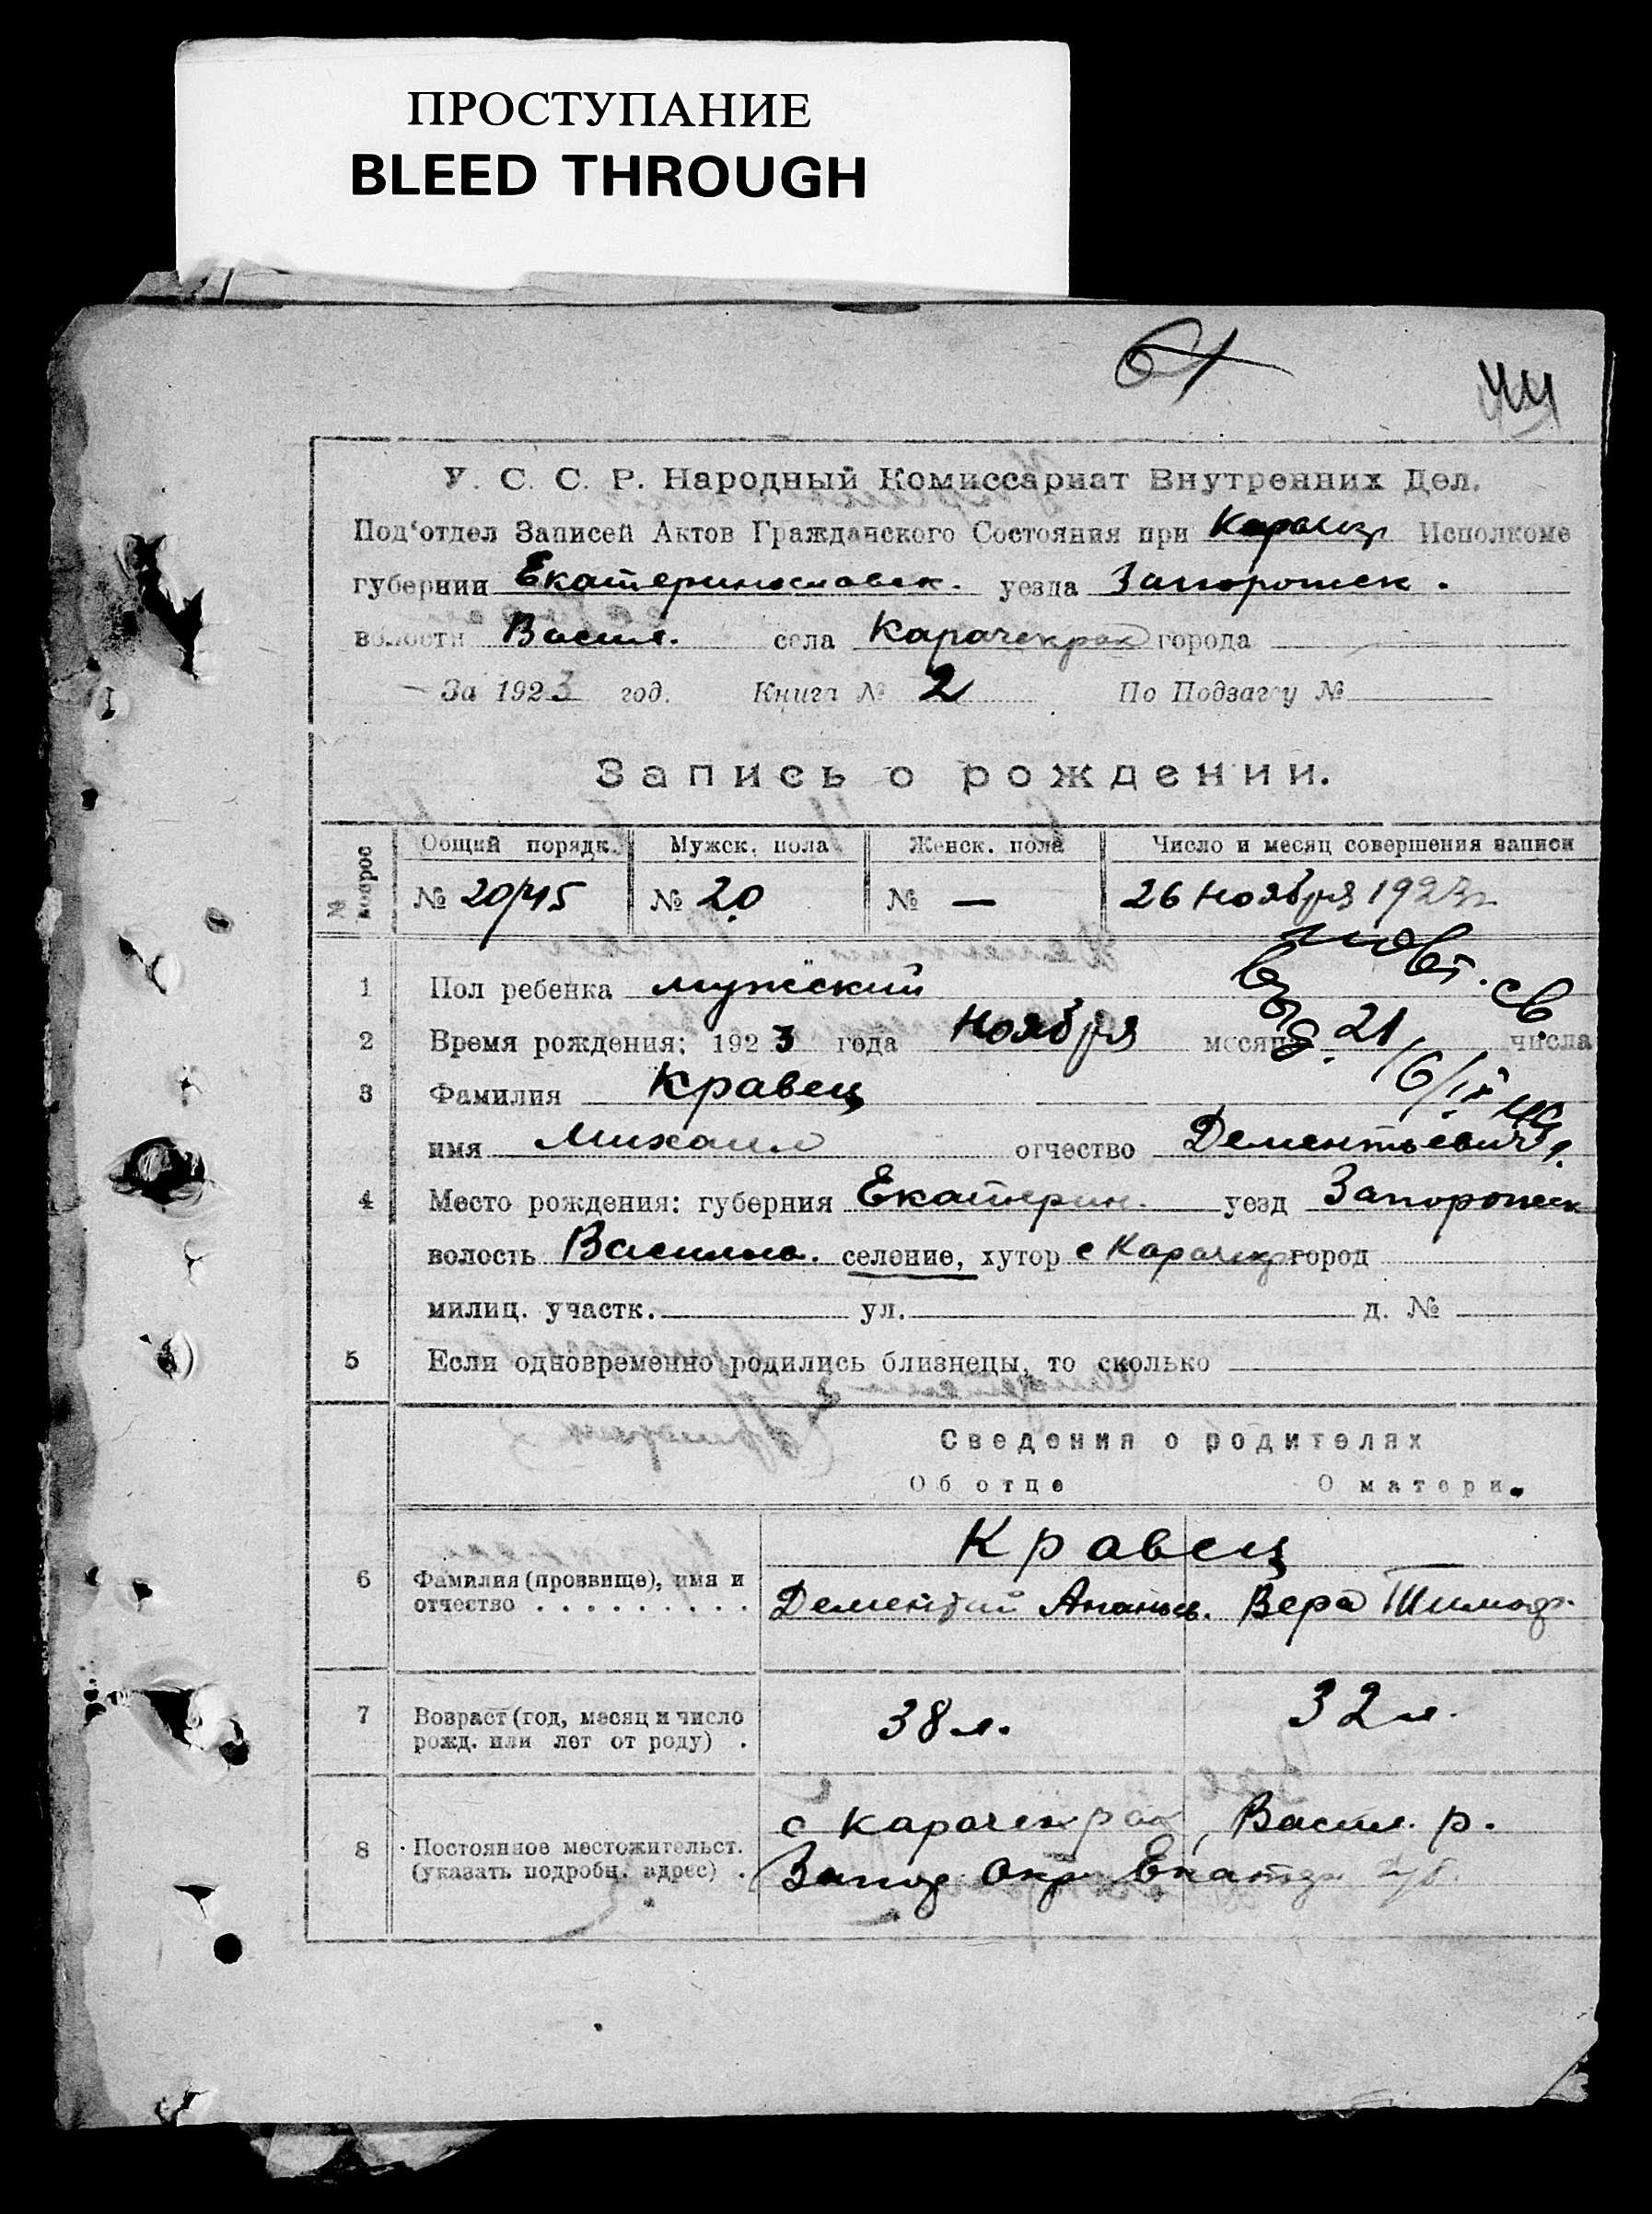 ПРОСТУПАНИЕ
BLEED THROUGH
61
44
У. С. С. Р. Народный Комиссариат Внутренних Дел.
Под'отдел Записей Актов Гражданского Состояния при Исполкоме
губернии Екатеринославск. уезда Запорожск.
волости Васил. села Карачекрак города
За 1923 год. Книга № 2 По Подзагсу №
Запись о рождении.
№ вопрос Общий порядк. Мужск. пола Женск. пола Число и месяц совершения записи
№ 20/45 № 20 № — 26 Ноября 1923г
повт. св.
выд.
1 Пол ребенка мужской
2 Время рождения: 1923 года Ноября месяца 21 числа
3 Фамилия Кравец
имя Михаил отчество Дементьевич
4 Место рождения: губерния Екатерин. уезд Запорожск
волость Василье. селение, хутор с Карачекр город
милиц. участк. ул. д. №
5 Если одновременно родились близнецы, то сколько
Сведения о родителях
Об отце О матери.
Кравец
6 Фамилия (прозвище), имя и отчество . . . . . . . . . Дементий Ананьев. Вера Тимоф.
7 Возраст (год, месяц и число рожд. или лет от роду) . 38 л. 32 л.
8 Постоянное местожительст. (указать подробн. адрес) . с Карачекрак, Васил. р.
Запор Окр Екатер губ.